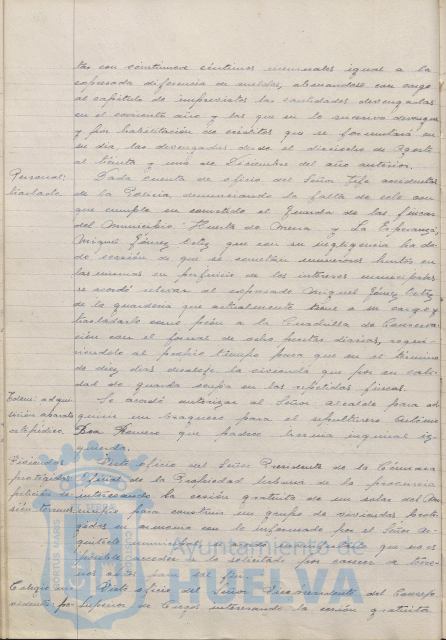 tas con veintinueve céntimos mensuales igual a la
expresada diferencia de sueldos, abonandose con cargo
al capítulo de imprevistos las cantidades devengadas
en el corriente año y las que en lo sucesivo devengue
y por habilitación de créditos que se formulará en
su día, las devengadas desde el dieciocho de Agosto
al treinta y uno de Diciembre del año anterior.
Personal: Dada cuenta de oficio del Señor Jefe accidental
traslado. de la Policía, denunciando la falta de celo con
que cumple su cometido el Guarda de las fincas
del Municipio "Huerta de Mena" y "La Esperanza",
Miguel Gómez, y que con su negligencia ha da-
do ocasión de que se cometan numerosos hurtos en
las mismas en perjuicio de los intereses municipales
se acordó relevar al expresado Miguel Gómez
de la guardería que actualmente tiene a su cargo y
trasladarlo como peón a la Cuadrilla de Conserva-
ción con el jornal de ocho pesetas diarias, requi-
riéndosele al propio tiempo para que en el término
de diez días desaloje la vivienda que por su cali-
dad de guarda ocupa en las repetidas fincas.
Idem: adqui- Se acordó autorizar al Señor Alcalde para ad-
sición aparato quirir un braguero para el sepulturero Antonio
ortopédico. Romero que padece hernia inguinal iz-
quierda.
Viviendas Visto oficio del Señor Presidente de la Cámara
protegidas: Oficial de la Propiedad Urbana de la provincia
petición de interesando la cesión gratuita de un solar del Mu-
sión terreno nicipio para construir un grupo de viviendas prote-
gidas, en armonía con lo informado por el Señor Ar-
quitecto municipal se acordó contestarle que no es
posible acceder a lo solicitado por carecer a
de solar para tal fin.
Colegio Visto oficio del Señor Vicepresidente del Consejo
Superior de Ciegos interesando la cesión gratuita
Ayuntamiento de
HUELVA